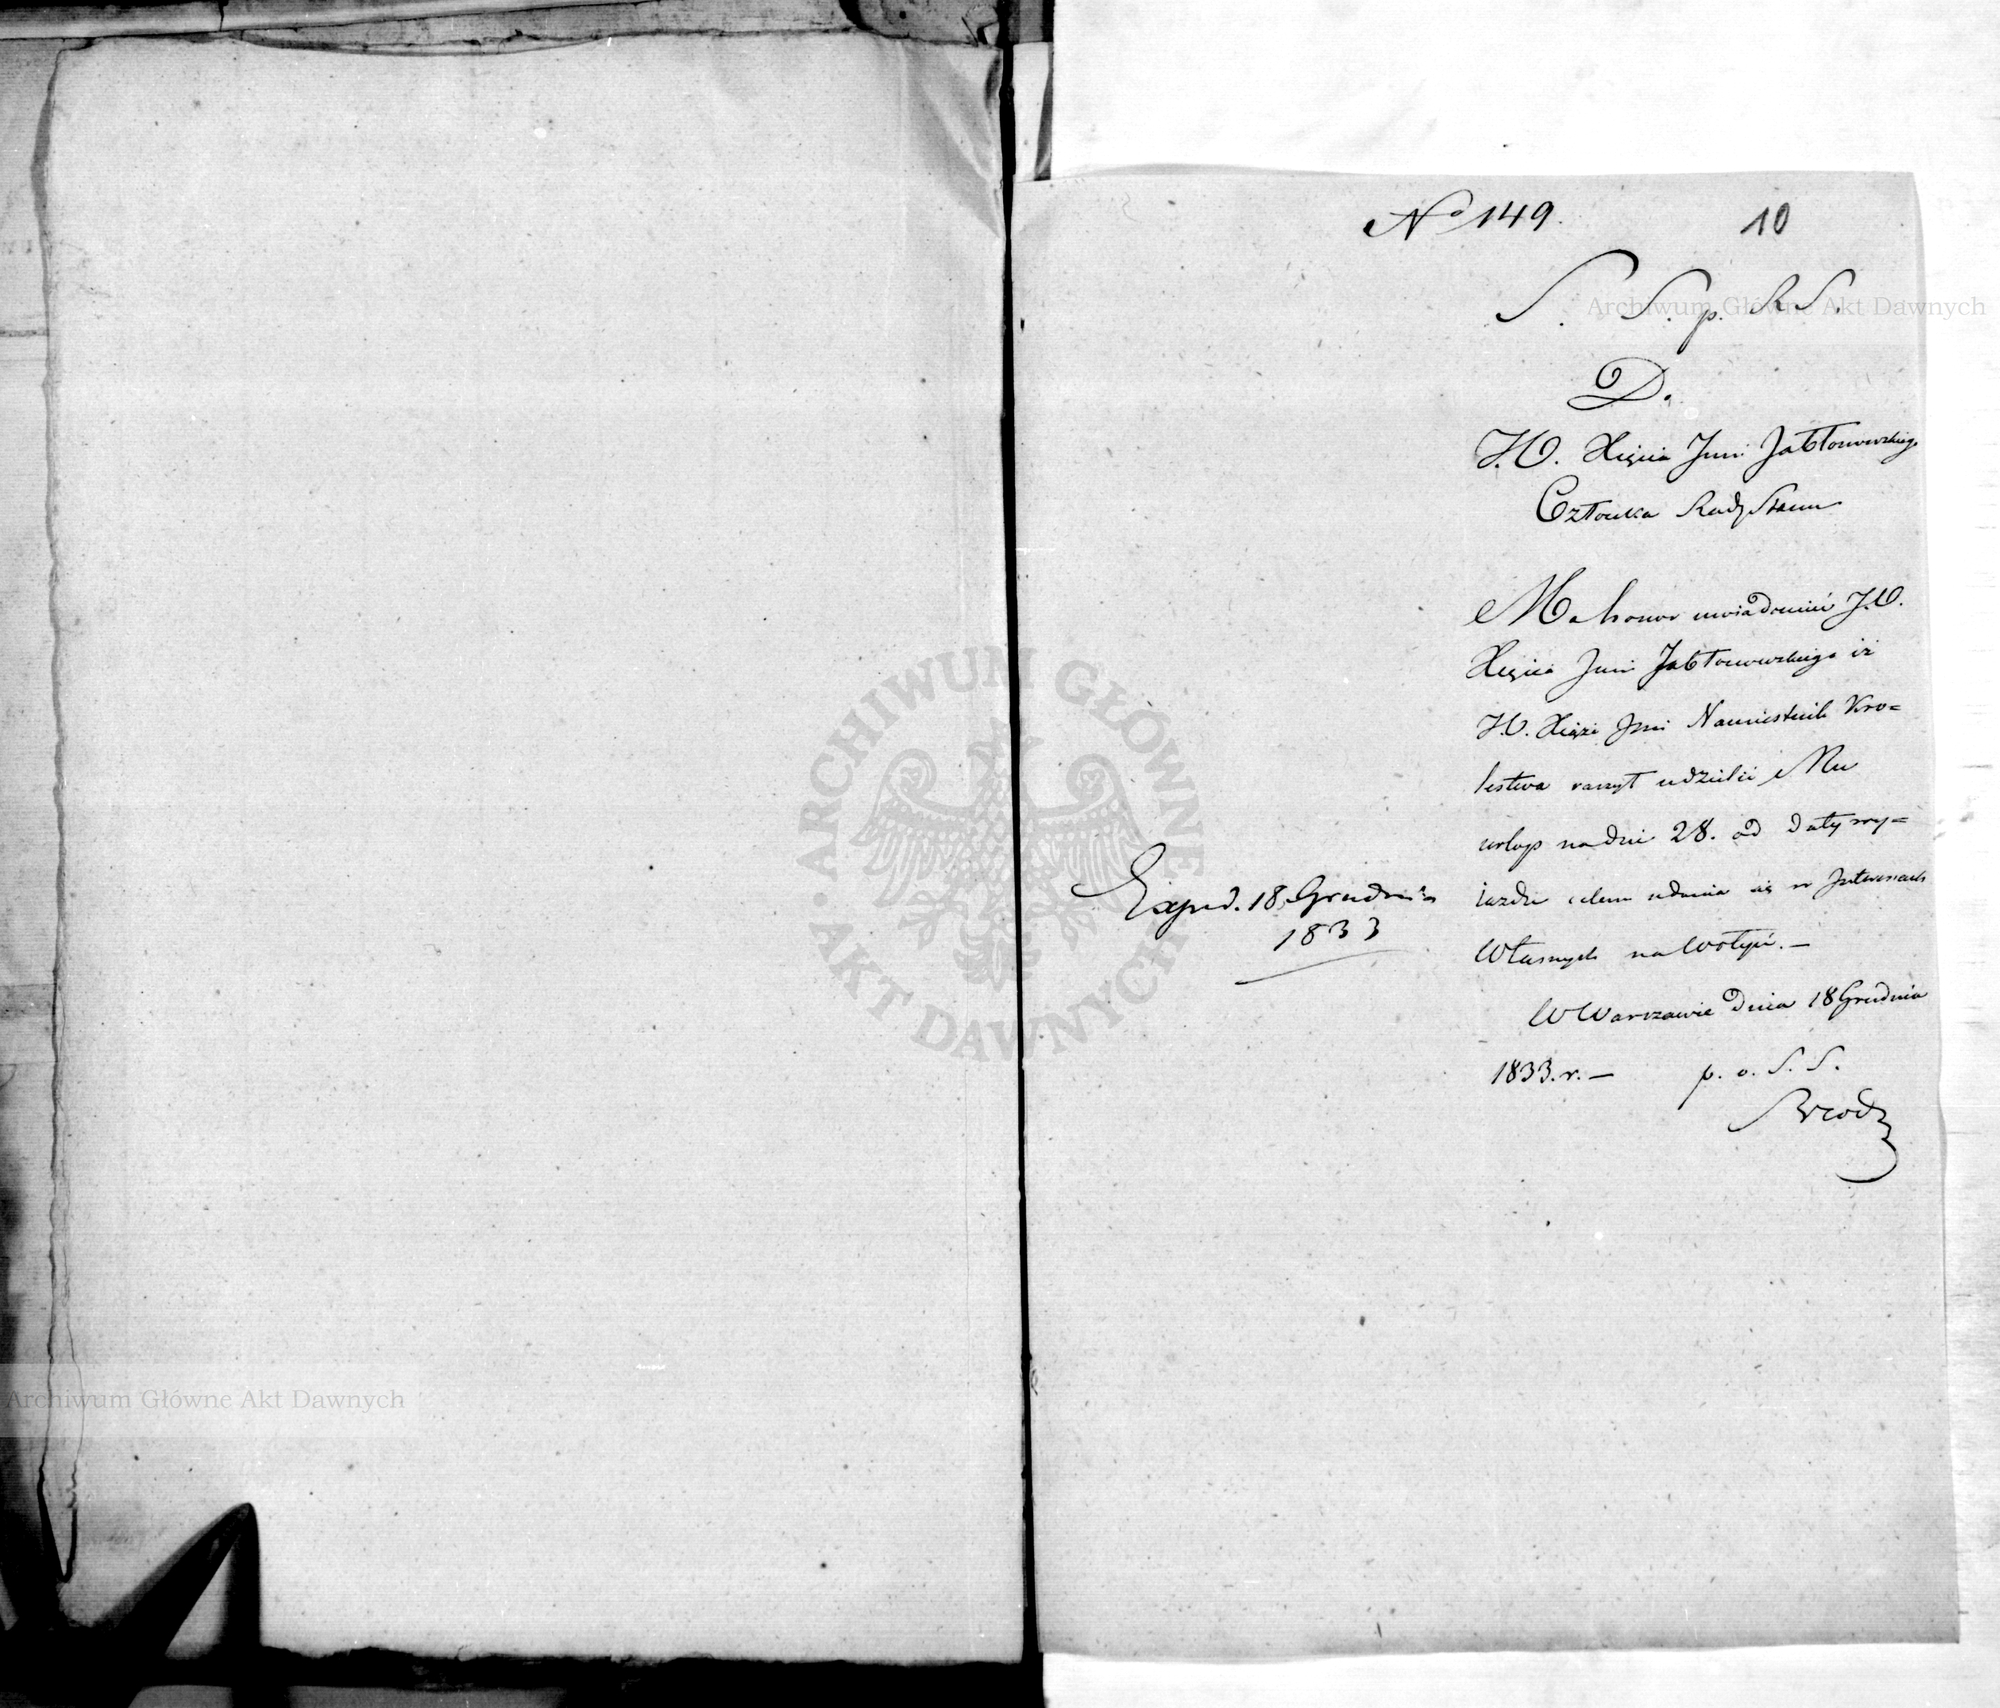 No 149.
10
S. S. p. R S.
D.
J.O. Xięcia Jmci Jabłonowskiego
Członka Rady Stanu
Ma honor uwiadomić J.O.
Xięcia Jmci Jabłonowskiego iż
J.O. Xiąże Jmć Namiestnik Kro=
lestwa raczył udzielić Mu
urlop na dni 28. od daty wy=
iazdu celem udania się w Interesach
Własnych na Wołyń. —
W Warszawie dnia 18 Grudnia
1833. r. —
p. o. S. S.
Exped. 18. Grudnia
1833
Archiwum Główne Akt Dawnych
ARCHIWUM GŁÓWNE AKT DAWNYCH
Archiwum Główne Akt Dawnych